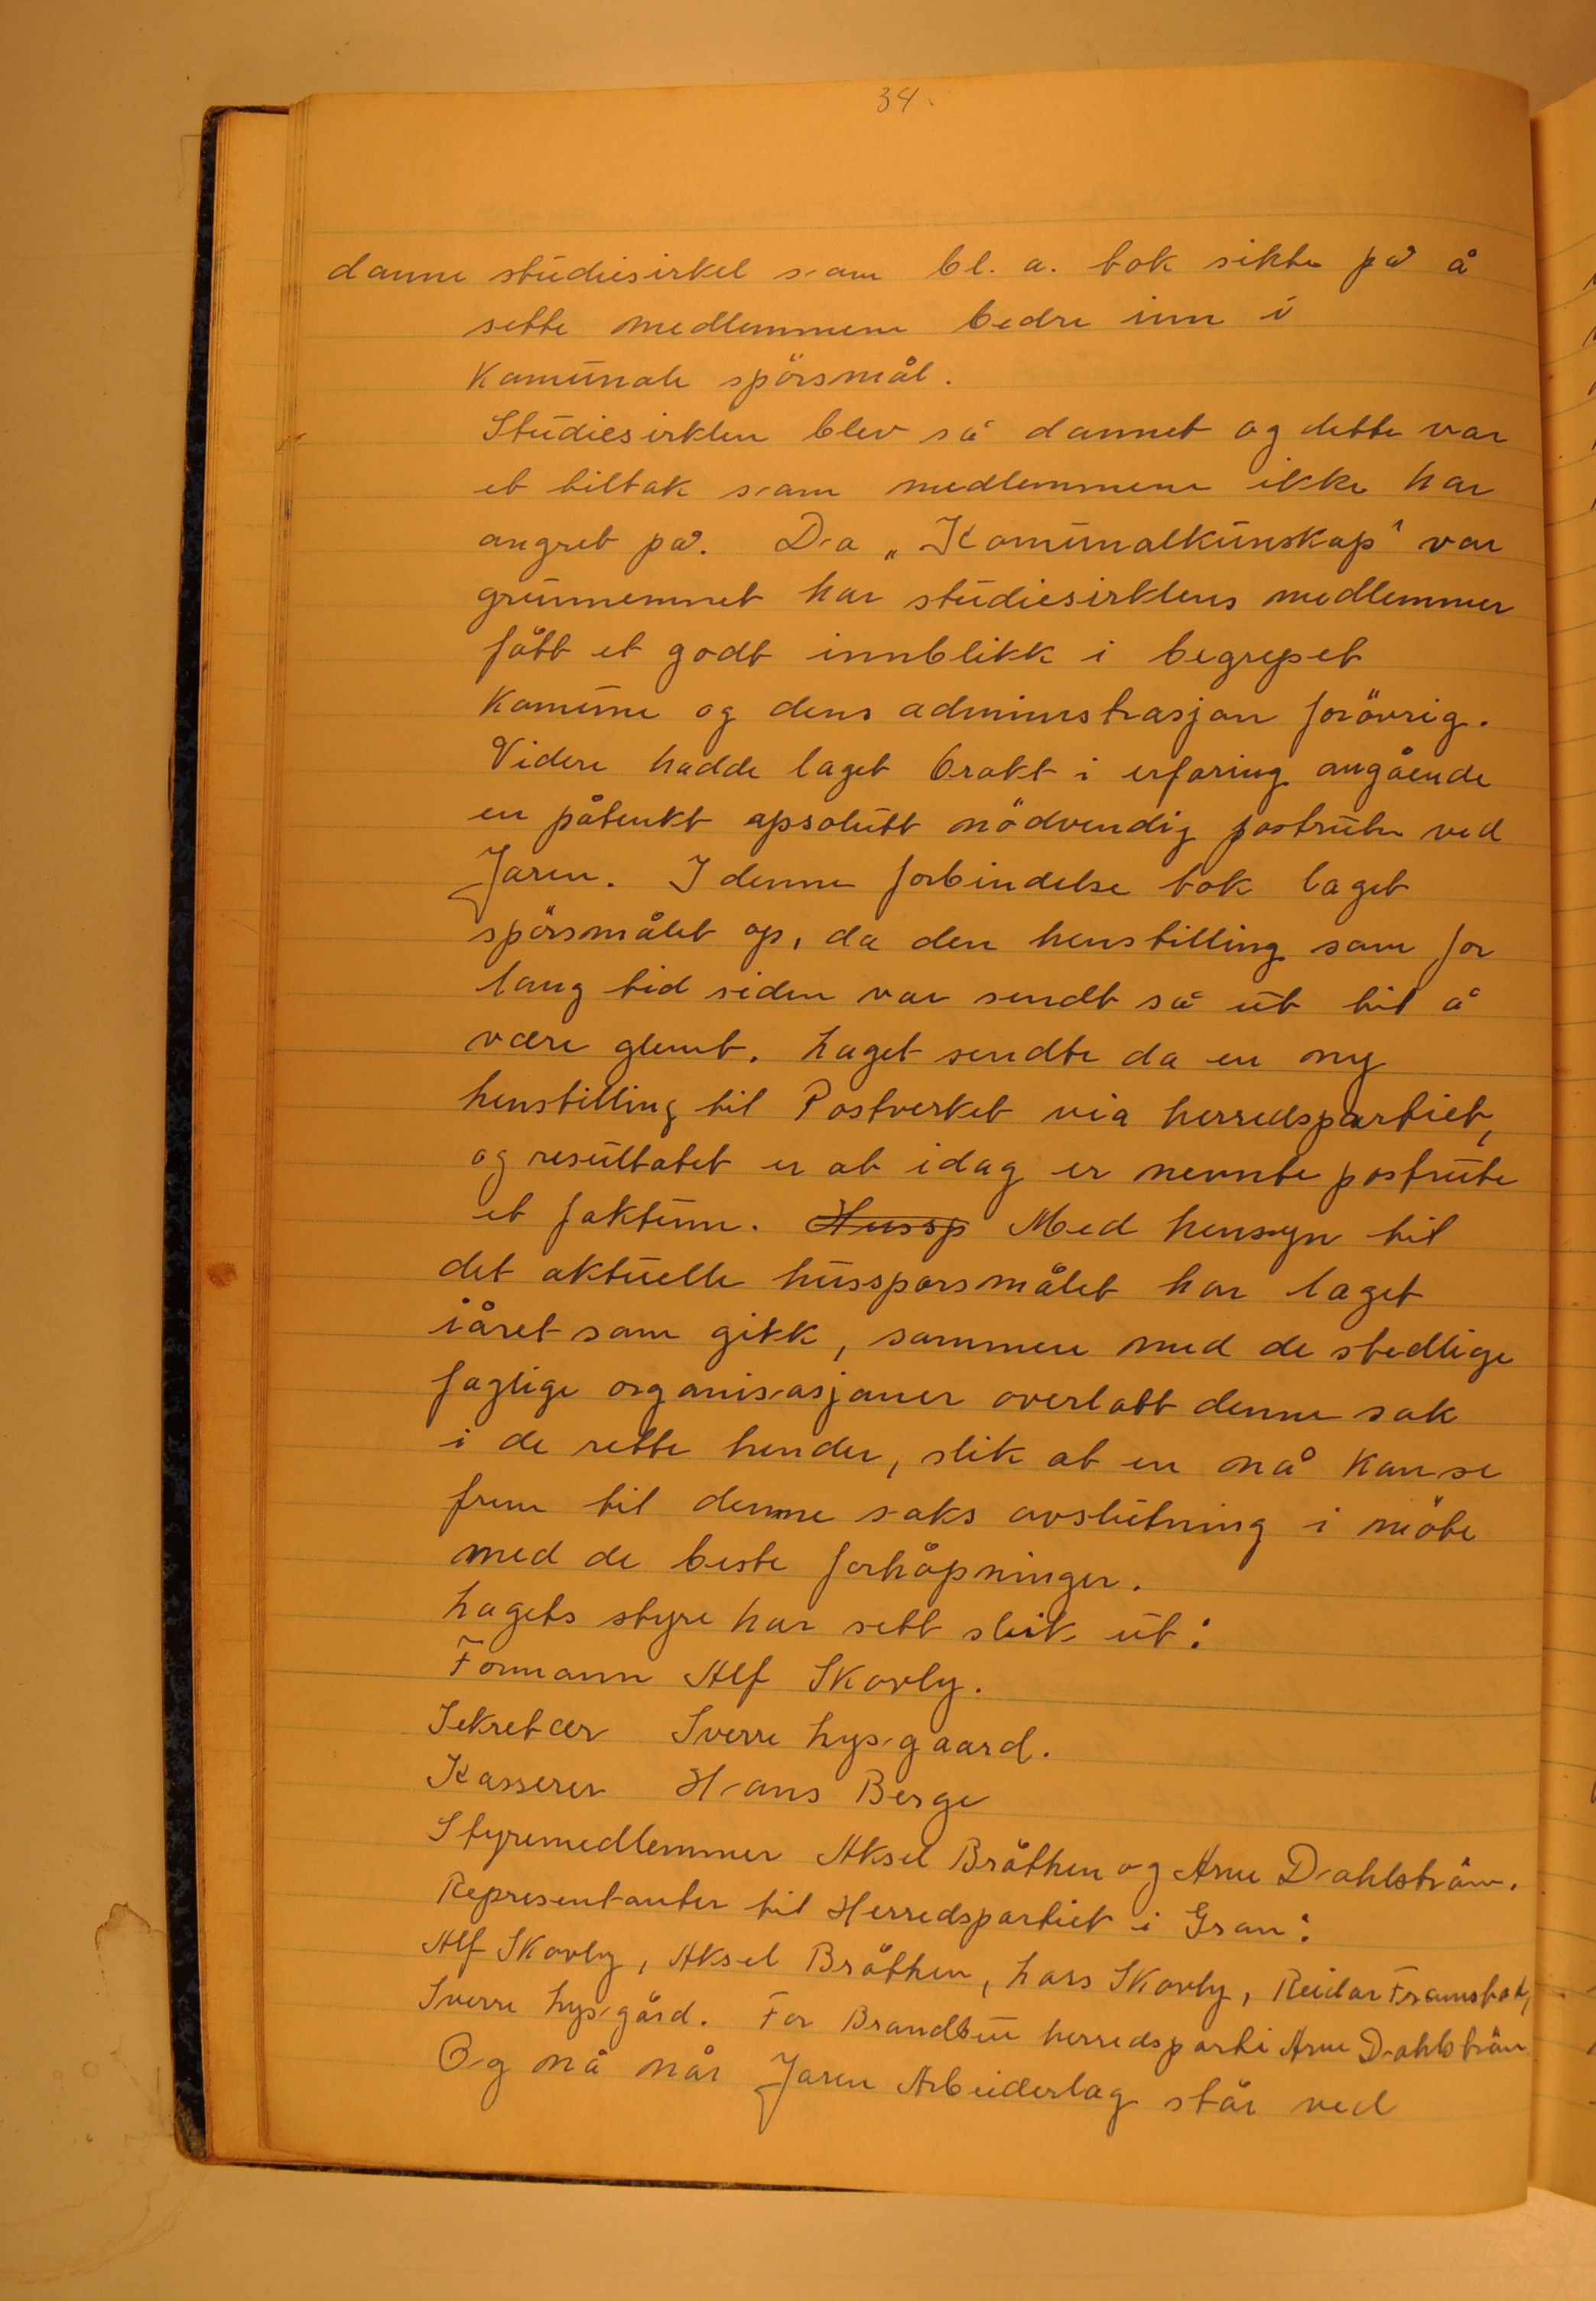 34.
danne studiesirkel som bl. a. tok sikte på å
sette medlemmene bedre inn i
komunale spörsmål.
Studiesirklen blev så dannet og dette var
et tiltak som medlemmene ikke har
angret på. Da „Komunalkunskap" var
grunnemnet har studiesirklens medlemmer
fått et godt innblikk i begrepet
komune og dens administrasjon forövrig.
Videre hadde laget brakt i erfaring angående
en påtenkt apsolutt nödvendig postrute ved
Jaren. I denne forbindelse tok laget
spörsmålet op, da den henstilling som for
lang tid siden var sendt så ut til å
være glemt. Laget sendte da en ny
henstilling til Postverket via herredspartiet,
og resultatet er at idag er nevnte postrute
et faktum. Hussp Med hensyn til
det aktuelle hussporsmålet har laget
iåret som gikk, sammen med de stedlige
faglige organisasjoner overlatt denne sak
i de rette hender, slik at en nå kan se
frem til denne saks avslutning i möte
med de beste forhåpninger.
Lagets styre har sett slik ut:
Formann Alf Skovly.
Sekretær Sverre Lysgaard.
Kasserer Hans Berge
Styremedlemmer Aksel Bråthen og Arne Dahlström.
Representanter til Herredspartiet i Gran:
Alf Skovly, Aksel Bråthen, Lars Skovly, Reidar Framstad,
Sverre Lysgård. For Brandbu herredsparti Arne Dahlström
Og nå når Jaren Arbeiderlag står ved